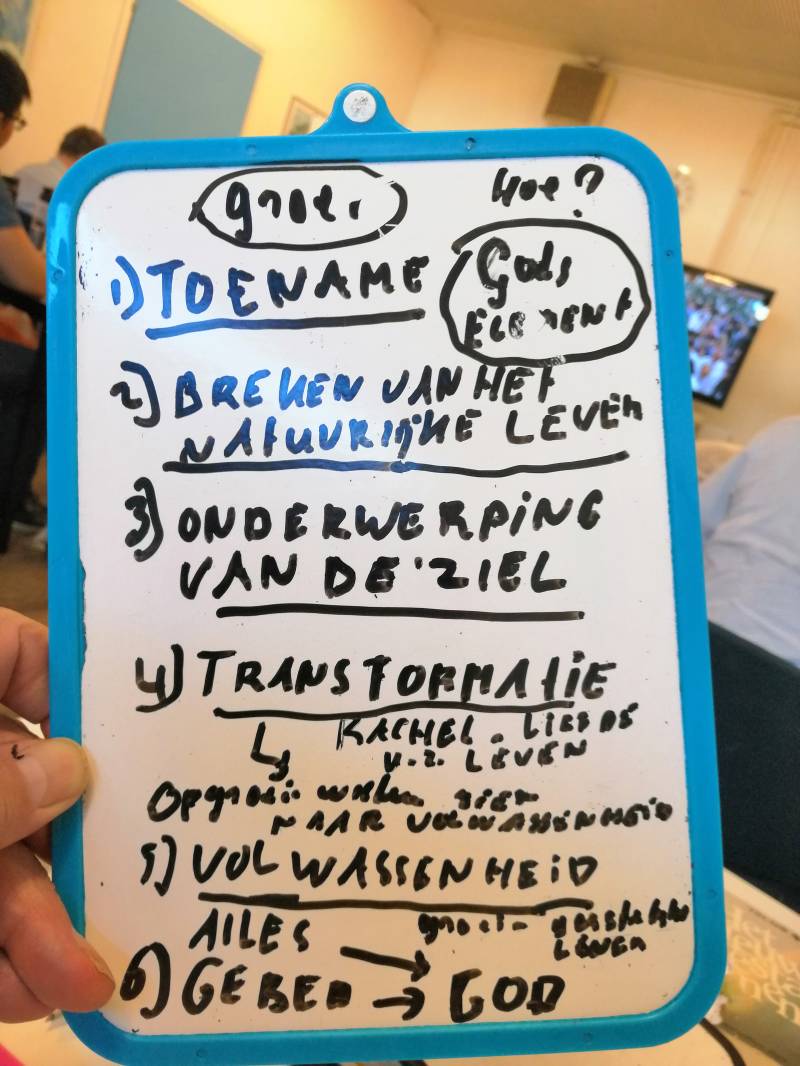 groei
Hoe?
1) TOENAME
Gods
ELEMENT
2) BREKEN VAN HET
NATUURLIJKE LEVEN
3) ONDERWERPING
VAN DE ZIEL
4) TRANSFORMATIE
RACHEL. LIEFDE
v.z. LEVEN
Opgroei
NAAR VOLWASSENHEID
5) VOLWASSENHEID
ALLES
groei
LEVEN
6) GEBED → GOD